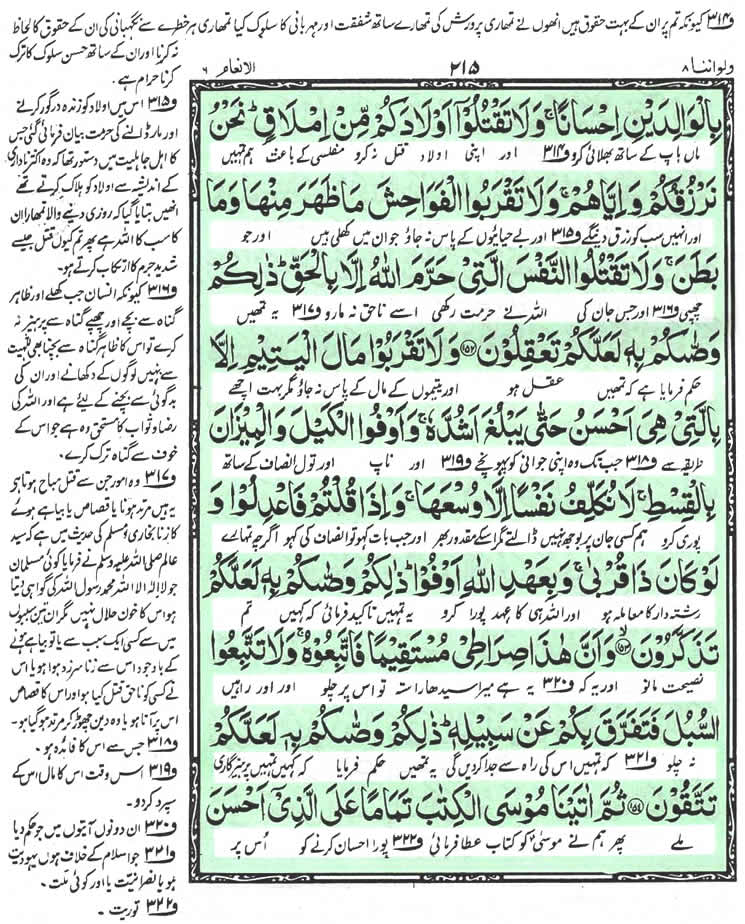 و۳۱۴ کیونکہ تم پر ان کے بہت حقوق ہیں انھوں نے تمھاری پرورش کی تمھارے ساتھ شفقت اور مہربانی کا سلوک کیا تمھاری ہر خطرے سے نگہبانی کی ان کے حقوق کا لحاظ
نہ کرنا اور ان کے ساتھ حسن سلوک کا ترک
کرنا حرام ہے۔
ولواننا ۸
۲۱۵
الانعام ۶
بِالْوَالِدَيْنِ اِحْسَانًا ۚ وَلَا تَقْتُلُوْۤا اَوْلَادَكُمْ مِّنْ اِمْلَاقٍ ؕ نَحْنُ
ماں باپ کے ساتھ بھلائی کرو و۳۱۴ اور اپنی اولاد قتل نہ کرو مفلسی کے باعث ہم تمہیں
نَرْزُقُكُمْ وَاِيَّاهُمْ ۚ وَلَا تَقْرَبُوا الْفَوَاحِشَ مَا ظَهَرَ مِنْهَا وَمَا
اور انہیں سب کو رزق دینگے و۳۱۵ اور بے حیائیوں کے پاس نہ جاؤ جو ان میں کھلی ہیں اور جو
بَطَنَ ۚ وَلَا تَقْتُلُوا النَّفْسَ الَّتِيْ حَرَّمَ اللّٰهُ اِلَّا بِالْحَقِّ ؕ ذٰلِكُمْ
چھپی و۳۱۶ اور جس جان کی اللہ نے حرمت رکھی اسے ناحق نہ مارو و۳۱۷ یہ تمھیں
وَصّٰىكُمْ بِهٖ لَعَلَّكُمْ تَعْقِلُوْنَ ﴿۱۵۲﴾ وَلَا تَقْرَبُوْا مَالَ الْيَتِيْمِ اِلَّا
حکم فرمایا ہے کہ تمھیں عقل ہو اور یتیموں کے مال کے پاس نہ جاؤ مگر بہت اچھے
بِالَّتِيْ هِيَ اَحْسَنُ حَتّٰى يَبْلُغَ اَشُدَّهٗ ۚ وَاَوْفُوا الْكَيْلَ وَالْمِيْزَانَ
طریقہ سے و۳۱۸ جب تک وہ اپنی جوانی کو پہونچے و۳۱۹ اور ناپ اور تول انصاف کے ساتھ
بِالْقِسْطِ ۚ لَا نُكَلِّفُ نَفْسًا اِلَّا وُسْعَهَا ۚ وَاِذَا قُلْتُمْ فَاعْدِلُوْا وَ
پوری کرو ہم کسی جان پر بوجھ نہیں ڈالتے مگر اسکے مقدور بھر اور جب بات کہو تو انصاف کی کہو اگرچہ تمہارے
لَوْ كَانَ ذَا قُرْبٰى ۚ وَبِعَهْدِ اللّٰهِ اَوْفُوْا ؕ ذٰلِكُمْ وَصّٰىكُمْ بِهٖ لَعَلَّكُمْ
رشتہ دار کا معاملہ ہو اور اللہ ہی کا عہد پورا کرو یہ تمہیں تاکید فرمائی کہ کہیں تم
تَذَكَّرُوْنَ ﴿۱۵۳﴾ وَاَنَّ هٰذَا صِرَاطِيْ مُسْتَقِيْمًا فَاتَّبِعُوْهُ ۚ وَلَا تَتَّبِعُوا
نصیحت مانو اور یہ کہ و۳۲۰ یہ ہے میرا سیدھا راستہ تو اس پر چلو اور اور راہیں
السُّبُلَ فَتَفَرَّقَ بِكُمْ عَنْ سَبِيْلِهٖ ؕ ذٰلِكُمْ وَصّٰىكُمْ بِهٖ لَعَلَّكُمْ
نہ چلو و۳۲۱ کہ تمہیں اس کی راہ سے جدا کردیں گی یہ تمھیں حکم فرمایا کہ کہیں تمہیں پرہیزگاری
تَتَّقُوْنَ ﴿۱۵۴﴾ ثُمَّ اٰتَيْنَا مُوْسَى الْكِتٰبَ تَمَامًا عَلَى الَّذِيْۤ اَحْسَنَ
ملے پھر ہم نے موسیٰ کو کتاب عطا فرمائی و۳۲۲ پورا احسان کرنے کو اُس پر
و۳۱۵ اس میں اولاد کو زندہ درگور کرنے
اور مار ڈالنے کی حرمت بیان فرمائی گئی جس
کا اہل جاہلیت میں دستور تھا کہ وہ اکثر ناداری
کے اندیشہ سے اولاد کو ہلاک کرتے تھے
انھیں بتایا گیا کہ روزی دینے والا تمہارا ان
کا سب کا اللہ ہے پھر تم کیوں قتل جیسے
شدید جرم کا ارتکاب کرتے ہو۔
و۳۱۶ کیونکہ انسان جب کھلے اور ظاہر
گناہ سے بچے اور چھپے گناہ سے پرہیز نہ
کرے تو اس کا ظاہر گناہ سے بچنا بھی للہیت
سے نہیں لوگوں کے دکھانے اور ان کی
بدگوئی سے بچنے کے لیئے ہے اور اللہ کی
رضا و ثواب کا مستحق وہ ہے جو اس کے
خوف سے گناہ ترک کرے۔
و۳۱۷ وہ امور جن سے قتل مباح ہوتا ہے
یہ ہیں مرتد ہونا یا قصاص یا بیاہے ہوئے
کا زنا بخاری و مسلم کی حدیث میں ہے کہ سید
عالم صلی اللہ علیہ وسلم نے فرمایا کوئی مسلمان
جو لا الہ الا اللہ محمد رسول اللہ کی گواہی دیتا
ہو اس کا خون حلال نہیں مگر ان تین سببوں
میں سے کسی ایک سبب سے یا تو بیاہے ہونے
کے باوجود اس سے زنا سرزد ہوا ہو یا اس
نے کسی کو ناحق قتل کیا ہو اور اس کا قصاص
اس پر آتا ہو یا وہ دین چھوڑ کر مرتد ہو گیا ہو۔
و۳۱۸ جس سے اس کا فائدہ ہو۔
و۳۱۹ اس وقت اس کا مال اس کے
سپرد کردو۔
و۳۲۰ ان دونوں آیتوں میں جو حکم دیا
و۳۲۱ جو اسلام کے خلاف ہوں یہودیت
ہو یا نصرانیت یا اور کوئی ملت۔
و۳۲۲ توریت۔